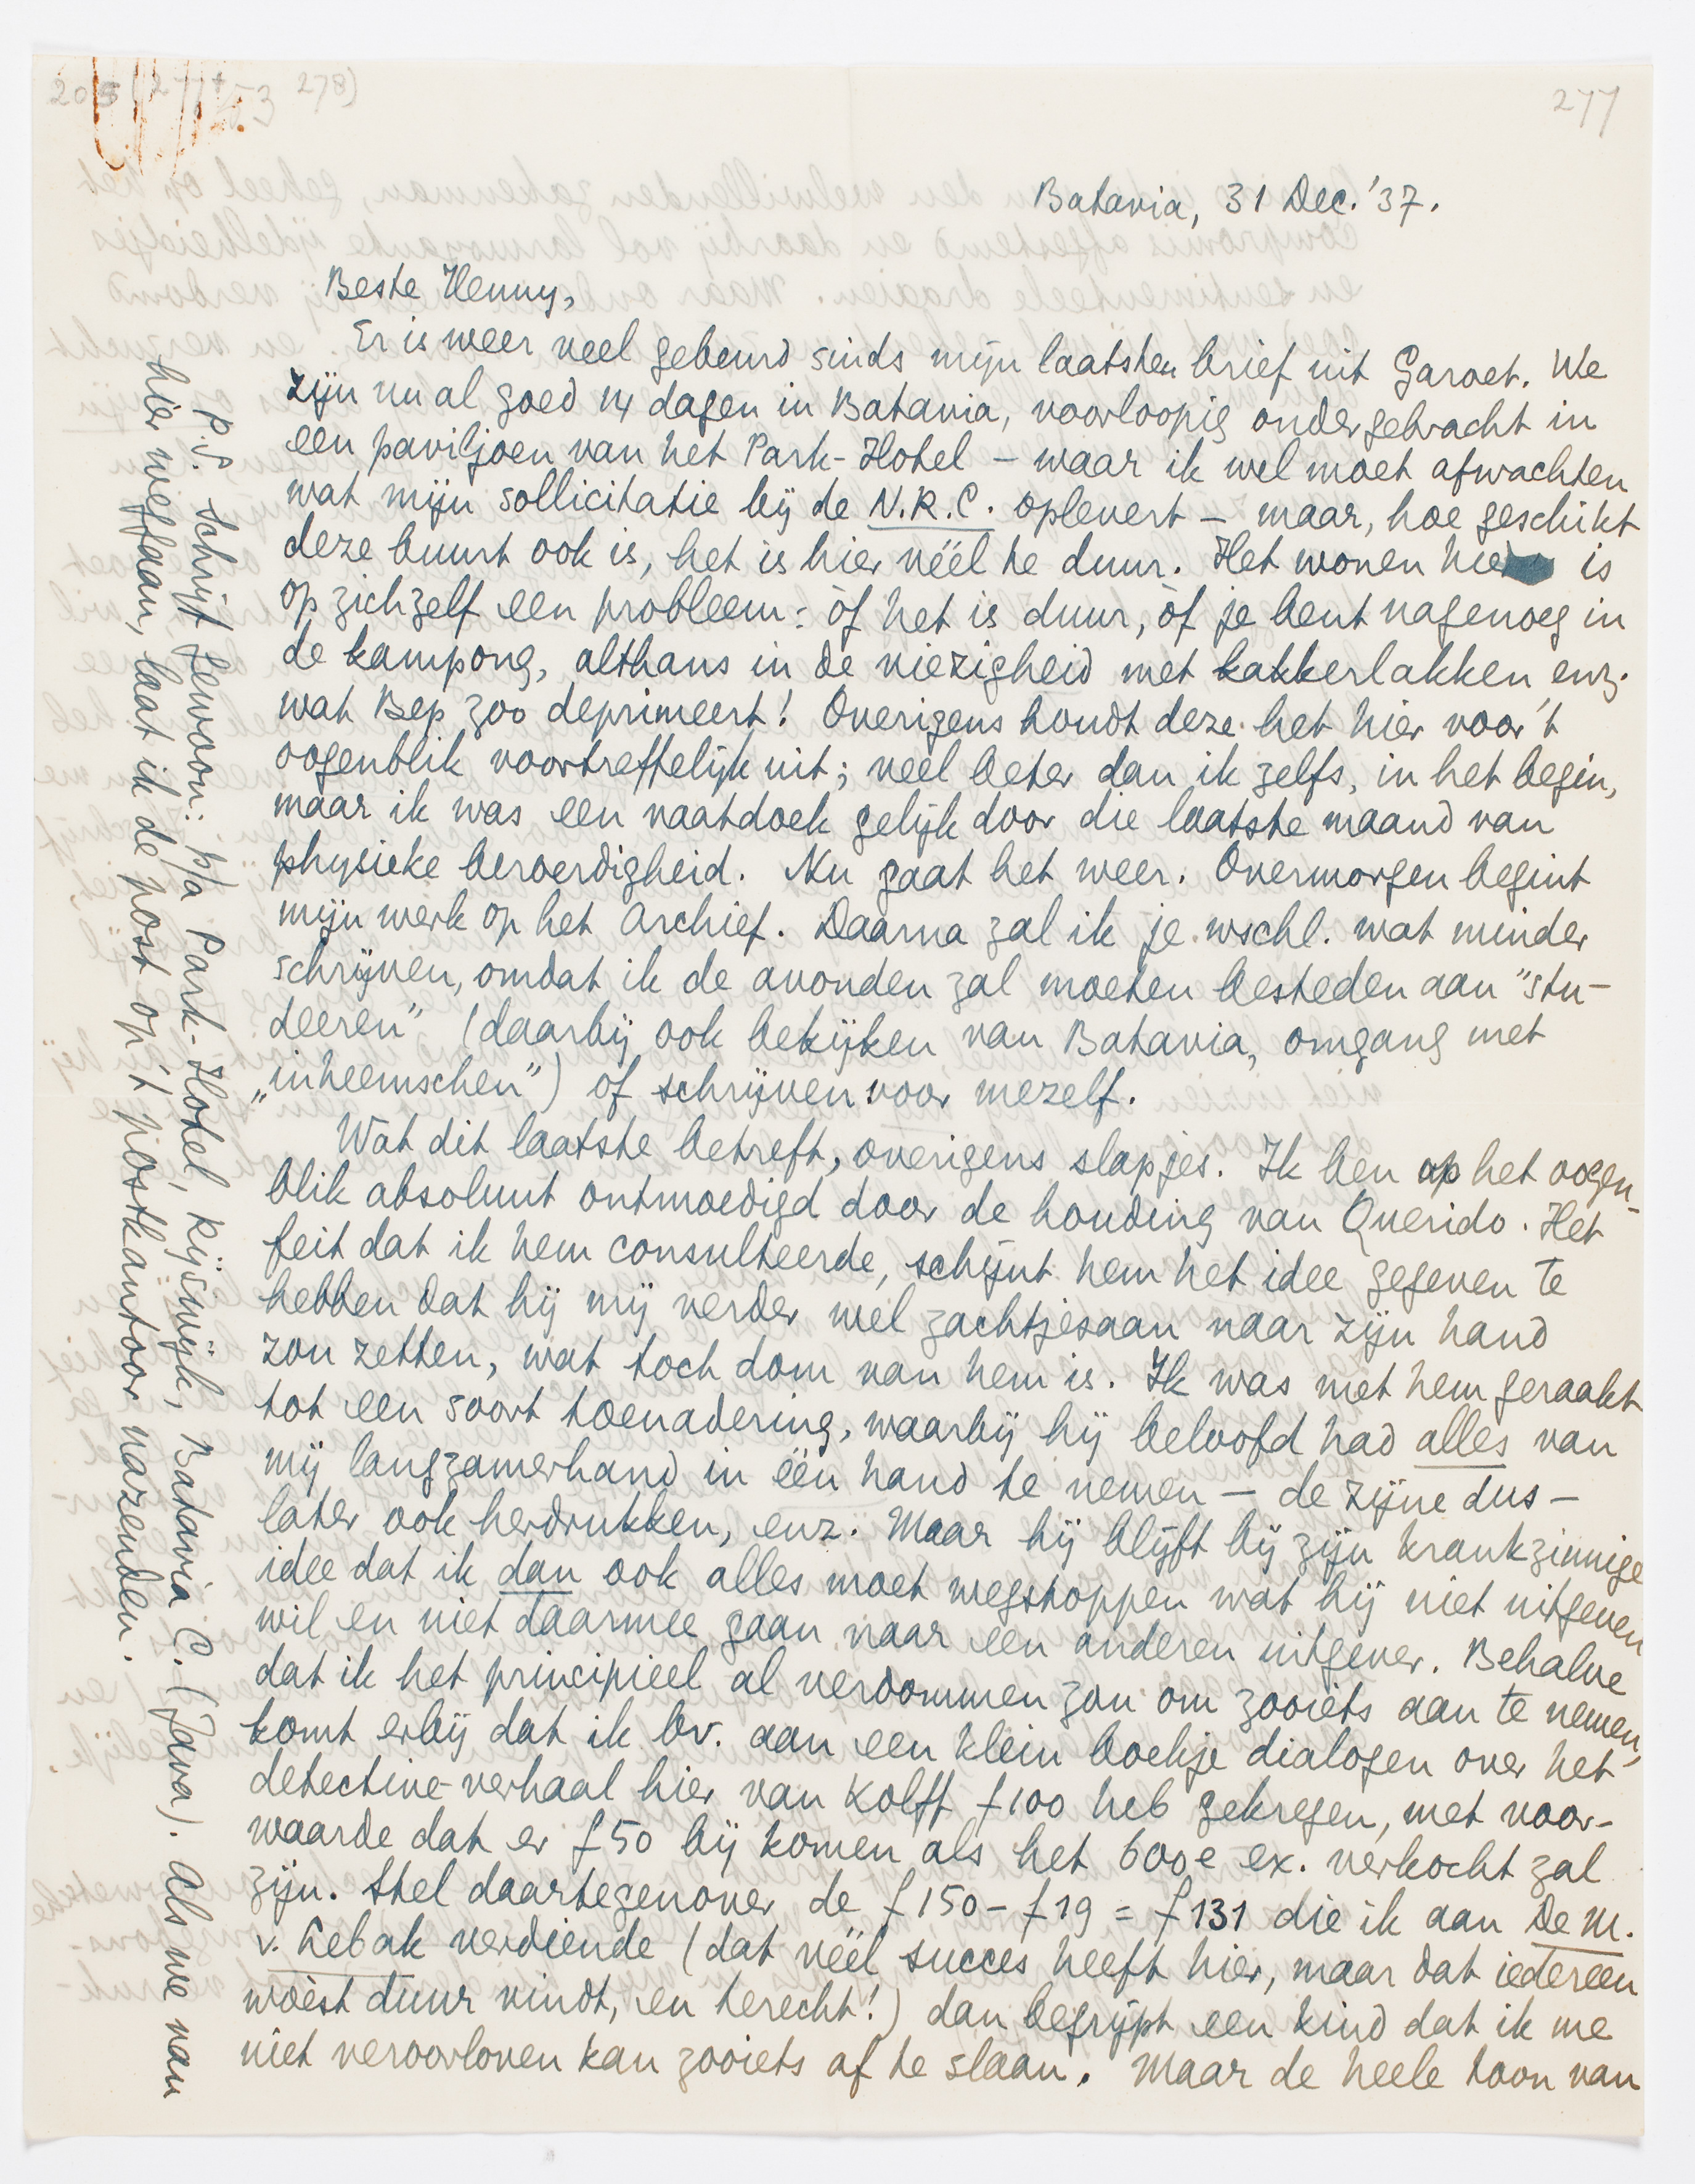 277
278)
Batavia, 31 Dec. '37.
Beste Henny,
Er is weer veel gebeurd sinds mijn laatsten brief uit Garoet. We
zijn nu al goed 14 dagen in Batavia, voorloopig ondergebracht in
een paviljoen van het Park-Hotel – waar ik wel moet afwachten
wat mijn sollicitatie bij de N.R.C. oplevert – maar, hoe geschikt
deze buurt ook is, het is hier véél te duur. Het wonen hier is
op zichzelf een probleem: òf het is duur, òf je bent nagenoeg in
de kampong, althans in de viezigheid met kakkerlakken enz.
wat Bep zoo deprimeert! Overigens houdt deze het hier voor 't
oogenblik voortreffelijk uit; veel beter dan ik zelfs, in het begin,
maar ik was een vaatdoek gelijk door die laatste maand van
physieke beroerdigheid. Nu gaat het weer. Overmorgen begint
mijn werk op het Archief. Daarna zal ik je wschl. wat minder
schrijven, omdat ik de avonden zal moeten besteden aan "stu-
deeren" (daarbij ook bekijken van Batavia, omgang met
„inheemschen") of schrijven voor mezelf.
Wat dit laatste betreft, overigens slapjes. Ik ben op het oogen-
blik absoluut ontmoedigd door de houding van Querido. Het
feit dat ik hem consulteerde, schijnt hem het idee gegeven te
hebben dat hij mij verder wel zachtjesaan naar zijn hand
zou zetten, wat toch dom van hem is. Ik was met hem geraakt
tot een soort toenadering, waarbij hij beloofd had alles van
mij langzamerhand in één hand te nemen – de zijne dus –
later ook herdrukken, enz. Maar hij blijft bij zijn krankzinnige
idee dat ik dan ook alles moet wegstoppen wat hij niet uitgeven
wil en niet daarmee gaan naar een anderen uitgever. Behalve
dat ik het principieel al verdommen zou om zooiets aan te nemen,
komt erbij dat ik bv. aan een klein boekje dialogen over het
detective-verhaal hier van Kolff f 100 heb gekregen, met voor-
waarde dat er f 50 bij komen als het 600e ex. verkocht zal
zijn. Stel daartegenover de f 150 – f 19 = f 131 die ik aan De M.
v. Lebak verdiende (dat véél succes heeft hier, maar dat iedereen
woest duur vindt, en terecht!) dan begrijpt een kind dat ik me
niet veroorloven kan zooiets af te slaan. Maar de heele toon van
P.S. Schrijf gewoon: p/a Park-Hotel, Rijswijk, Batavia C. (Java). Als we van
hier weggaan, laat ik de post op 't postkantoor nazenden.